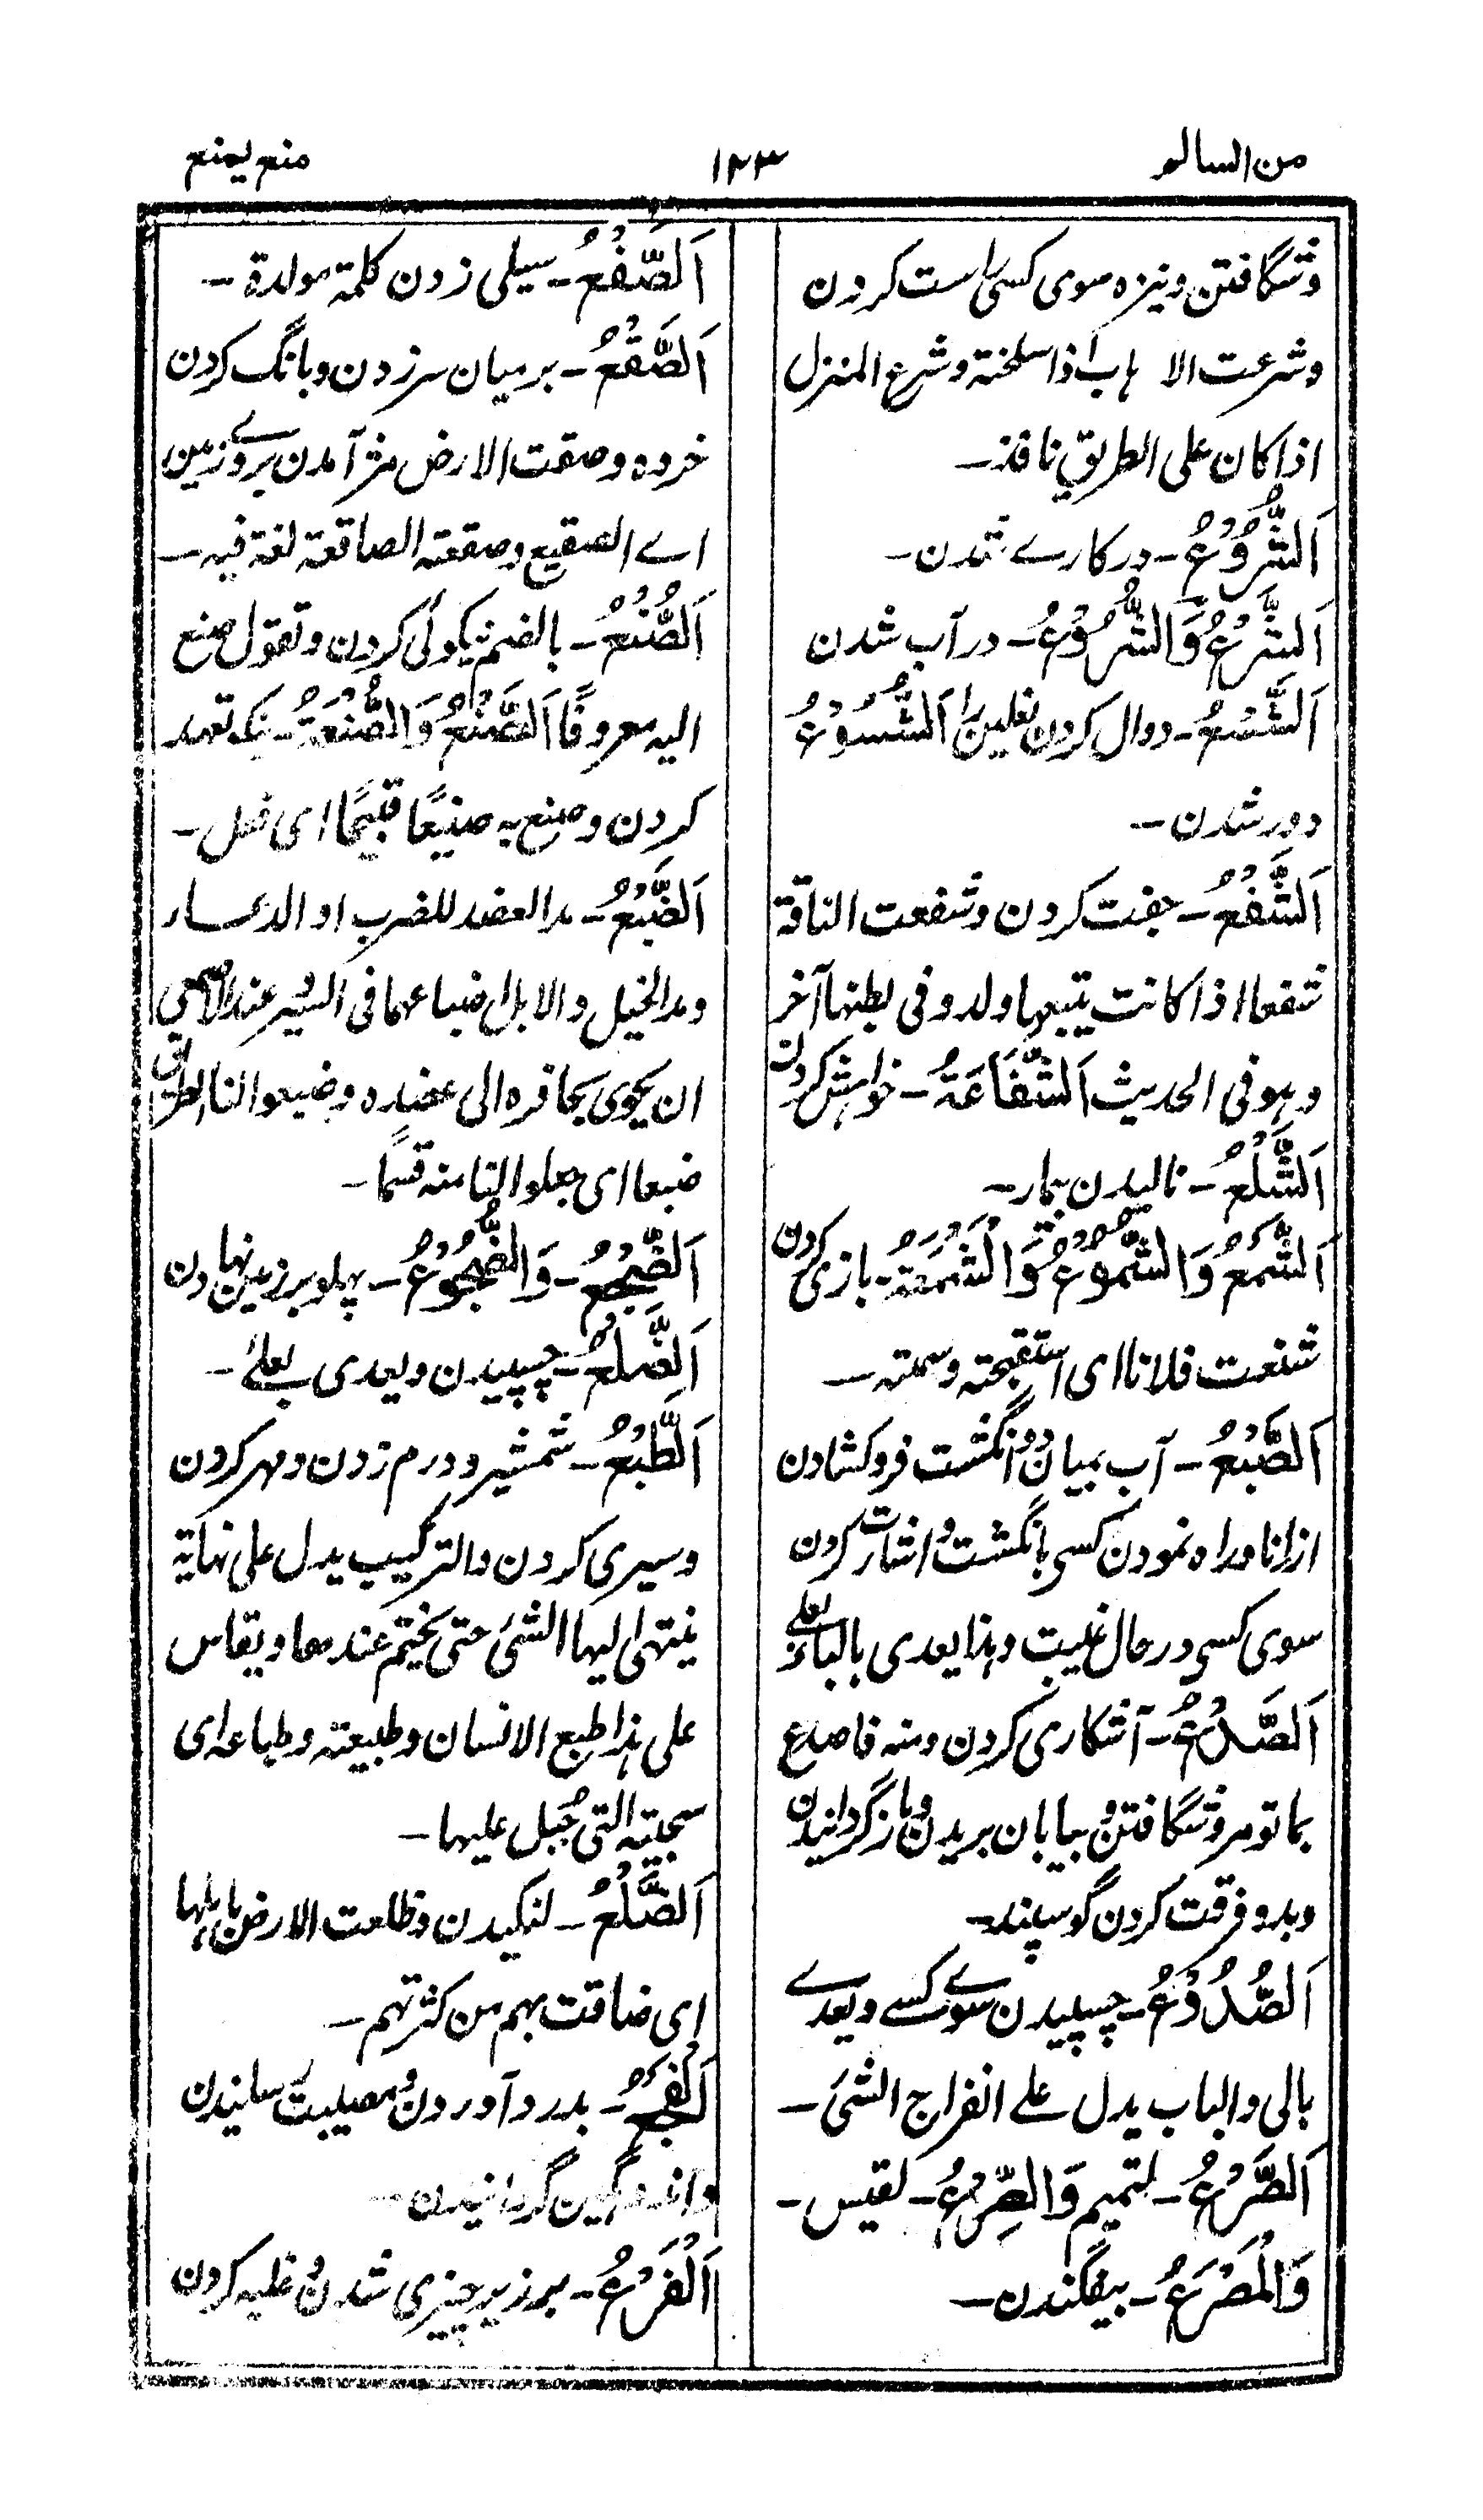 من السالم
۱۲۳
منع یمنع
وشگافتن ونیزه سوی کسی راست کردن
وشرعت الاهاب اذا سلخته وشرع المنزل
اذا کان علی الطریق نافذ ـ
اَلشُّرُوْعُ ـ درکارے شدن ـ
اَلشَّرْعُ وَالشُّرُوْعُ ـ درآب شدن
اَلشَّسْعُ ـ دوال کردن نعلین را اَلشُّسُوْعُ
دور شدن ـ
اَلشَّفْعُ ـ جفت کردن وشفعت الناقة
شفعا اذا کانت یتبعها ولد وفی بطنها آخر
وہو فی الحدیث اَلشَّفَاعَةُ ـ خواہش کردن
اَلشَّلْعُ ـ نالیدن بیمار ـ
اَلشَّمْعُ وَالشُّمُوْعُ وَالْمَشْمَعَةُ ـ بازی کردن
شنعت فلانا ای استقبحته وسمته ـ
اَلصَّبْعُ ـ آب بمیان دو انگشت فروکشادن
ازانا وراه نمودن کسی بانگشت و اشارت کردن
سوی کسی درحال غیبت وہذا یعدی بالباء وبعلی
اَلصَّدْعُ ـ آشکاری کردن ومنه فاصدع
بما تومر وشگافتن و بیابان بریدن و بازگردانیدن
وبدو فرقت کردن گوسپند ـ
اَلصُّدُوْعُ ـ چسپیدن سوے کسے ویعدے
بالی والباب یدل علے انفراج الشیٔ ـ
اَلصَّرْعُ ـ لتمیم وَالصِّرْعُ ـ لقیس ـ
وَالْمَصْرَعُ ـ بیفگندن ـ
اَلصَّفْعُ ـ سیلی زدن کلمة مولدة ـ
اَلصَّقْعُ ـ برمیان سر زدن وبانگ کردن
خروه وصقعت الارض بژ آمدن بروے زمین
اے الصقیع وصقعته الصاقعة لغة فیه ـ
اَلصُّنْعُ ـ بالضم نیکوئی کردن وتقول صنع
الیه معروفًا اَلصَّنْعُ وَالصَّنْعَةُ ـ نیک تعهد
کردن وصنع به صنیعًا قبیحًا ای فعل ـ
اَلضَّبْعُ ـ مد العضد للضرب او الدعاء
ومد الخیل والابل اضباعهما فی السیر وعند الاصمعی
ان یهوی بحافره الی عضده وضبعوا لنا الطریق
ضبعا ای جعلوا لنا منه قسمًا ـ
اَلضَّجْعُ ـ وَالضُّجُوْعُ ـ پهلو برزمین نهادن
اَلضَّلْعُ ـ چسپیدن ویعدی بعلےٰ ـ
اَلطَّبْعُ ـ شمشیر ودرم زدن ومهر کردن
وسیری کردن والترکیب یدل علی نهایة
ینتهی الیها الشیٔ حتی یختم عندها ویقاس
علی ہذا طبع الانسان وطبیعته وطباعه ای
سجیته التی جُبل علیها ـ
اَلضَّلْعُ ـ لنگیدن وظلعت الارض باہلها
ای ضاقت بهم من کثرتهم ـ
اَلْفَجْعُ ـ بدرد آوردن و مصیبت رسانیدن
واندوہگین گردانیدن ـ
اَلْفَرْعُ ـ برزبر چیزی شدن و غلبه کردن